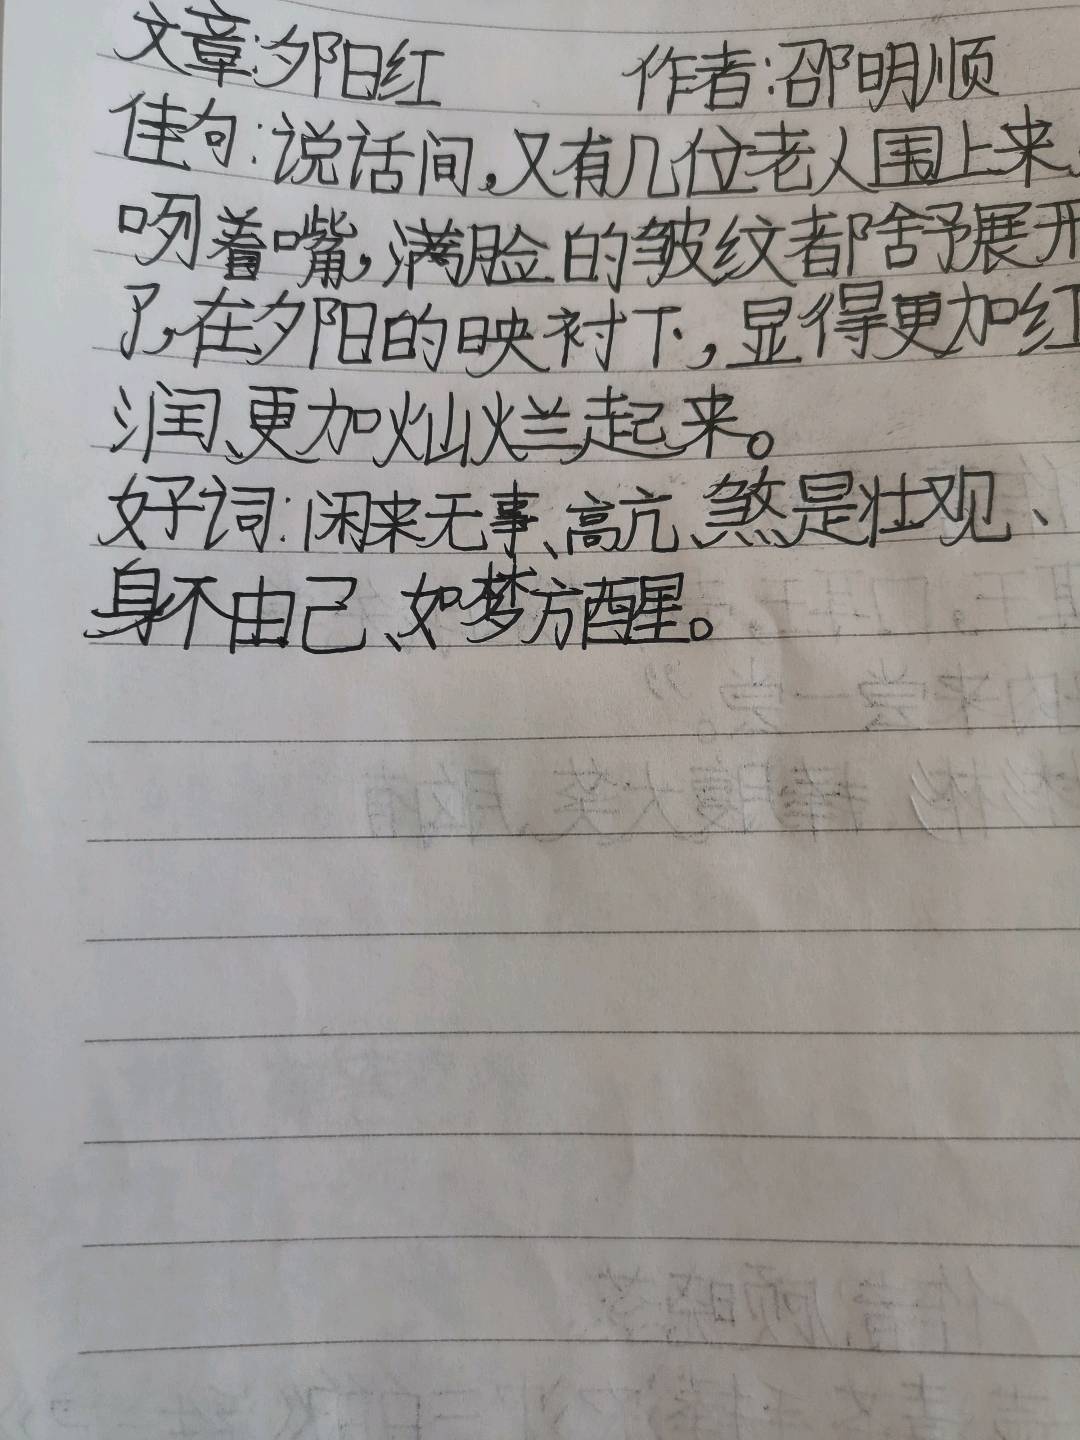 文章:夕阳红 作者:邵明顺
佳句:说话间,又有几位老人围上来,
咧着嘴,满脸的皱纹都舒展开
了,在夕阳的映衬下,显得更加红
润、更加灿烂起来。
好词:闲来无事、高亢、煞是壮观、
身不由己、如梦方醒。